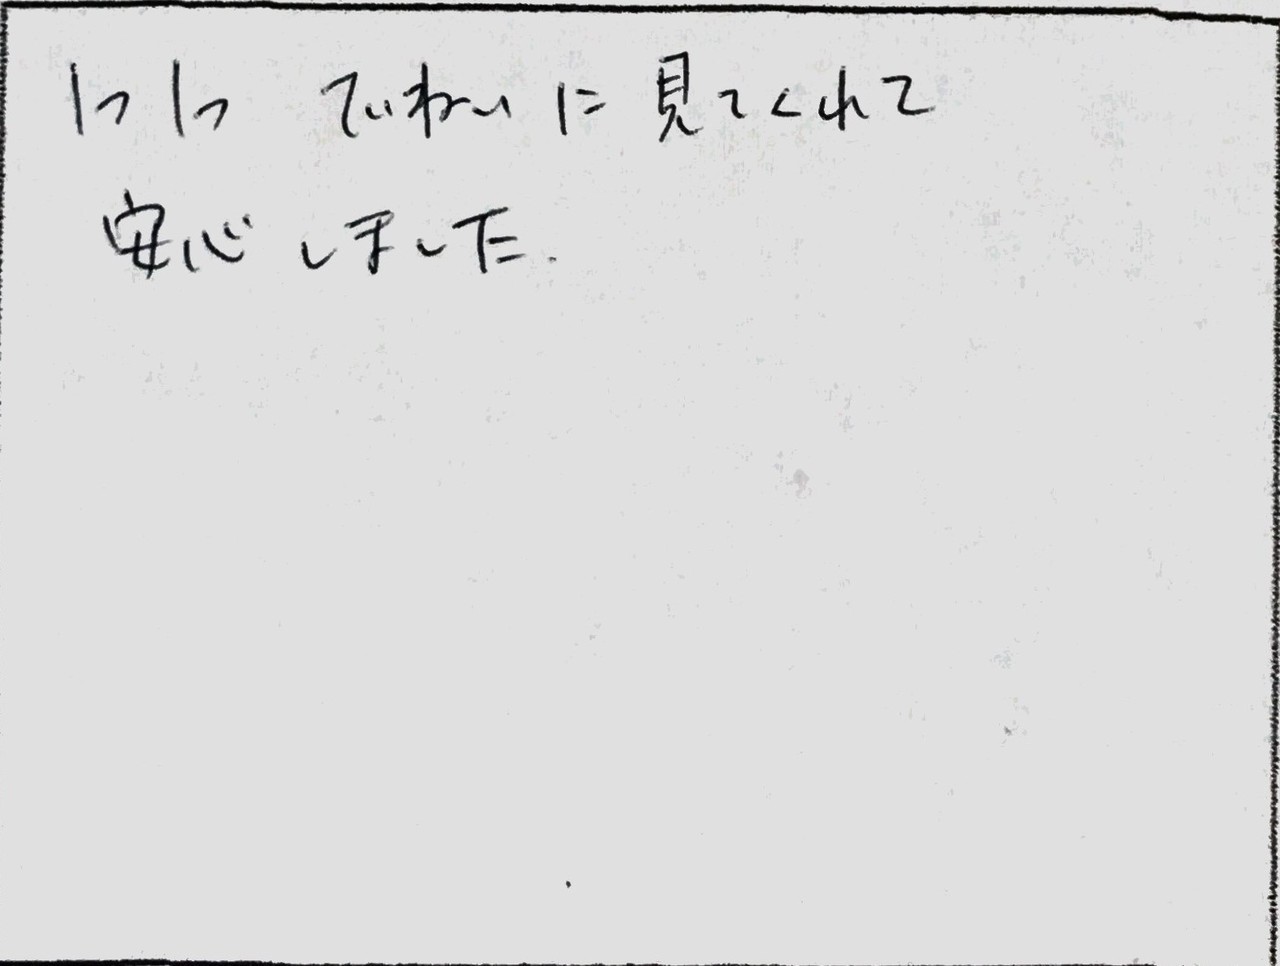 1つ1つ ていねいに見てくれて
安心しました.